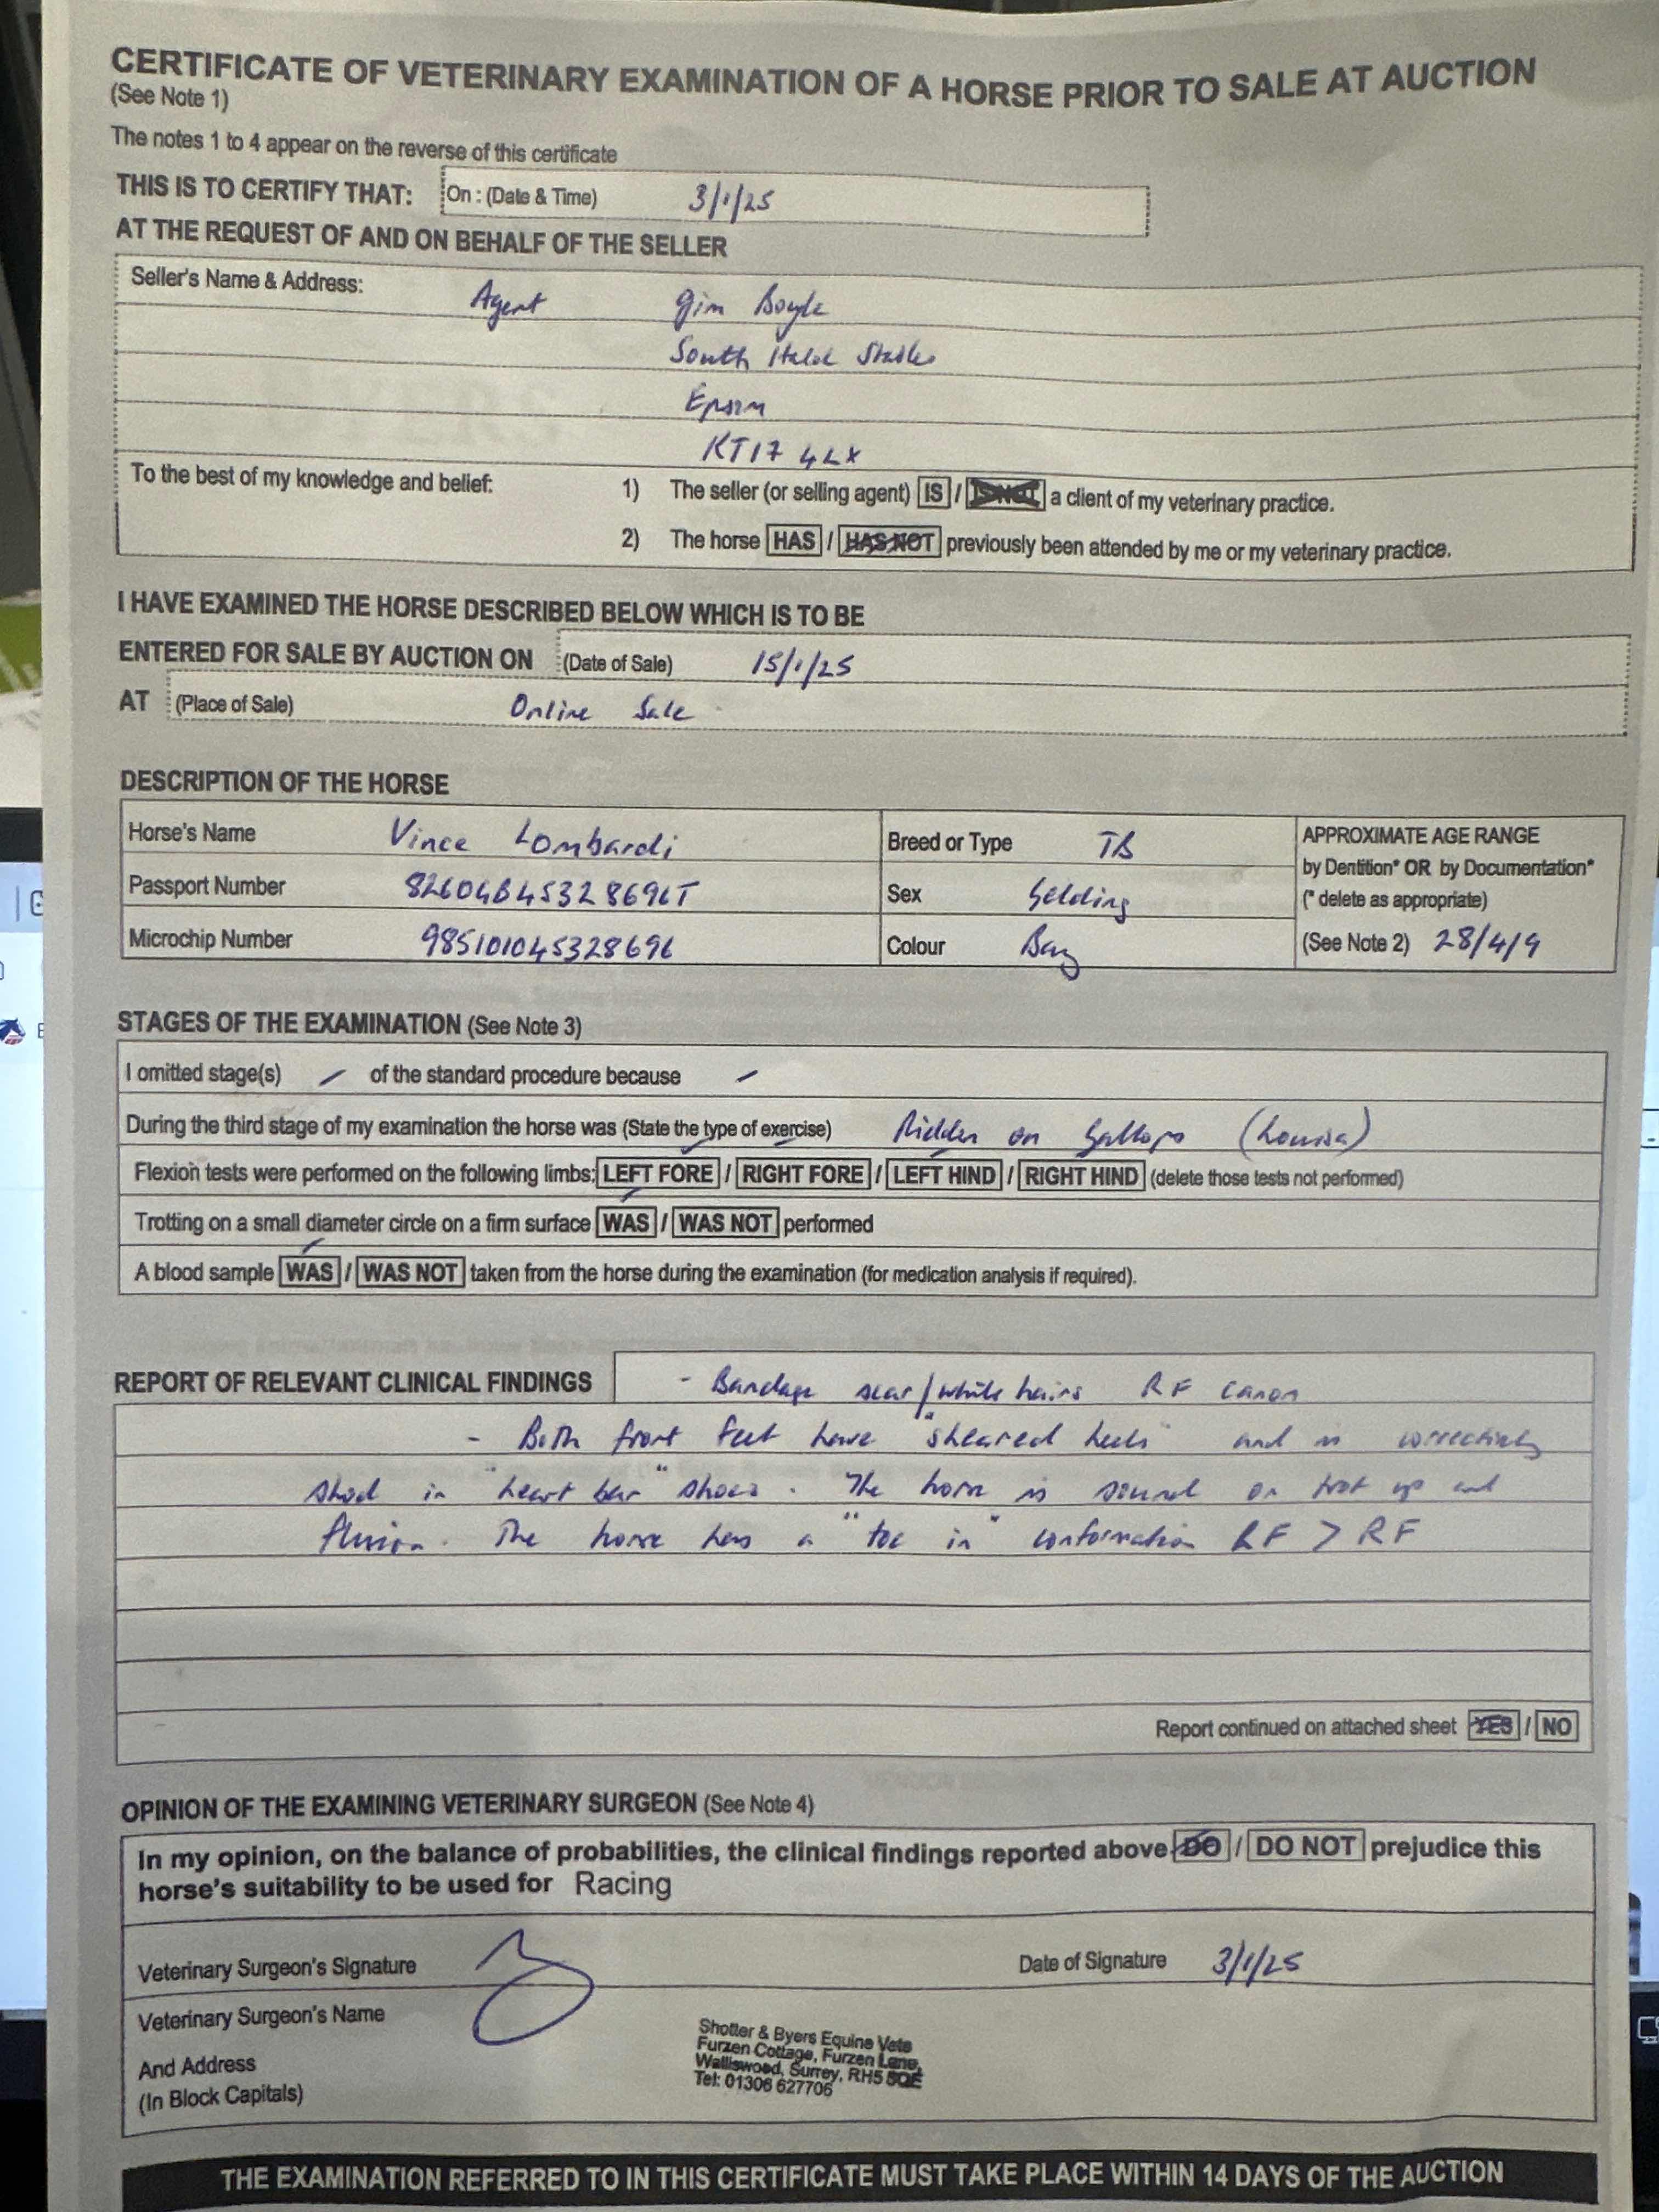 CERTIFICATE OF VETERINARY EXAMINATION OF A HORSE PRIOR TO SALE AT AUCTION
(See Note 1)
The notes 1 to 4 appear on the reverse of this certificate
THIS IS TO CERTIFY THAT: On : (Date & Time) 3/1/25
AT THE REQUEST OF AND ON BEHALF OF THE SELLER
Seller's Name & Address: Agent Jim Boyle
South Stables
Epsom
KT17 4LX
To the best of my knowledge and belief: 1) The seller (or selling agent) IS / IS NOT a client of my veterinary practice.
2) The horse HAS / HAS NOT previously been attended by me or my veterinary practice.
I HAVE EXAMINED THE HORSE DESCRIBED BELOW WHICH IS TO BE
ENTERED FOR SALE BY AUCTION ON (Date of Sale) 15/1/25
AT (Place of Sale) Online Sale
DESCRIPTION OF THE HORSE
Horse's Name Vince Lombardi Breed or Type TB APPROXIMATE AGE RANGE
by Dentition* OR by Documentation*
Passport Number Sex Gelding (* delete as appropriate)
Microchip Number 985101045328696 Colour Bay (See Note 2) 28/4/9
STAGES OF THE EXAMINATION (See Note 3)
I omitted stage(s) / of the standard procedure because /
During the third stage of my examination the horse was (State the type of exercise) Ridden on Gallops (Louisa)
Flexion tests were performed on the following limbs: LEFT FORE / RIGHT FORE / LEFT HIND / RIGHT HIND (delete those tests not performed)
Trotting on a small diameter circle on a firm surface WAS / WAS NOT performed
A blood sample WAS / WAS NOT taken from the horse during the examination (for medication analysis if required).
REPORT OF RELEVANT CLINICAL FINDINGS - Bandage scar/white hairs RF canon
- Both front feet have "sheared heels" and is correctively
shod in "heart bar" shoes. The horse is sound on trot up and
flexion. The horse has a "toe in" conformation LF > RF
Report continued on attached sheet YES / NO
OPINION OF THE EXAMINING VETERINARY SURGEON (See Note 4)
In my opinion, on the balance of probabilities, the clinical findings reported above DO / DO NOT prejudice this
horse's suitability to be used for Racing
Veterinary Surgeon's Signature Date of Signature 3/1/25
Veterinary Surgeon's Name
And Address
(In Block Capitals)
Shotter & Byers Equine Vets
Furzen Cottage, Furzen Lane,
Walliswood, Surrey, RH5 5QE
Tel: 01306 627706
THE EXAMINATION REFERRED TO IN THIS CERTIFICATE MUST TAKE PLACE WITHIN 14 DAYS OF THE AUCTION